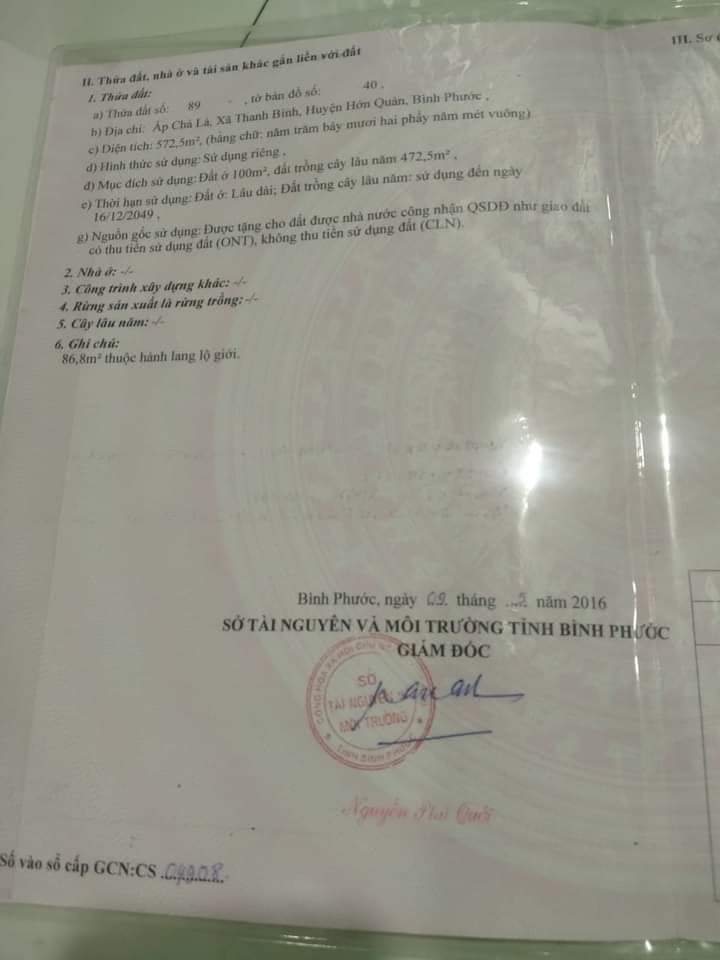 II. Thửa đất, nhà ở và tài sản khác gắn liền với đất
III. Sơ
1. Thửa đất:
a) Thửa đất số: 89 - , tờ bản đồ số: 40 ,
b) Địa chỉ: Ấp Chà Là, Xã Thanh Bình, Huyện Hớn Quản, Bình Phước ,
c) Diện tích: 572,5m², (bằng chữ: năm trăm bảy mươi hai phẩy năm mét vuông)
d) Hình thức sử dụng: Sử dụng riêng ,
đ) Mục đích sử dụng: Đất ở 100m², đất trồng cây lâu năm 472,5m² ,
e) Thời hạn sử dụng: Đất ở: Lâu dài; Đất trồng cây lâu năm: sử dụng đến ngày
16/12/2049 ,
g) Nguồn gốc sử dụng: Được tặng cho đất được nhà nước công nhận QSDĐ như giao đất
có thu tiền sử dụng đất (ONT), không thu tiền sử dụng đất (CLN).
2. Nhà ở: -/-
3. Công trình xây dựng khác: -/-
4. Rừng sản xuất là rừng trồng: -/-
5. Cây lâu năm: -/-
6. Ghi chú:
86,8m² thuộc hành lang lộ giới.
Bình Phước, ngày 09 tháng năm 2016
SỞ TÀI NGUYÊN VÀ MÔI TRƯỜNG TỈNH BÌNH PHƯỚC
GIÁM ĐỐC
SỞ
TÀI NGUYÊN
MÔI TRƯỜNG
TỈNH BÌNH PHƯỚC
Nguyễn Phú Quới
Số vào sổ cấp GCN:CS 04908